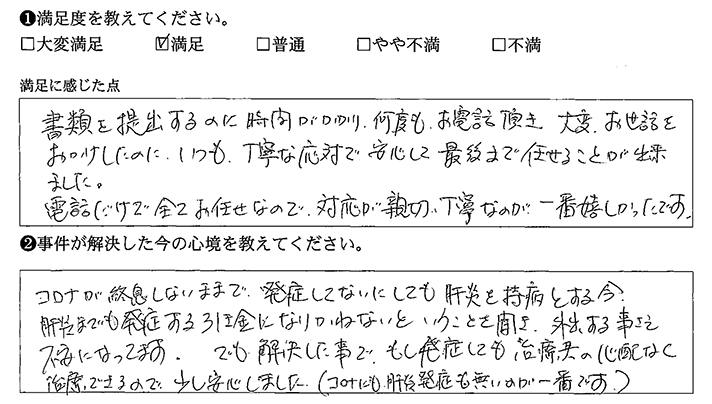 ❶満足度を教えてください。
□大変満足 ☑満足 □普通 □やや不満 □不満
満足に感じた点
書類を提出するのに時間がかかり、何度も、お電話頂き、大変、お世話を
おかけしたのに、いつも、丁寧な応対で安心して最後まで任せることが出来
ました。
電話だけで全てお任せなので、対応が親切、丁寧なのが、一番嬉しかったです。
❷事件が解決した今の心境を教えてください。
コロナが終息しないままで、発症してないにしても肝炎を持病とする今、
肝炎までも発症する引き金になりかねないということを聞き、外出する事さえ
不安になってます。でも解決した事で、もし発症しても治療費の心配なく
治療できるので、少し安心しました。(コロナにも、肝炎発症も無いのが一番です。)